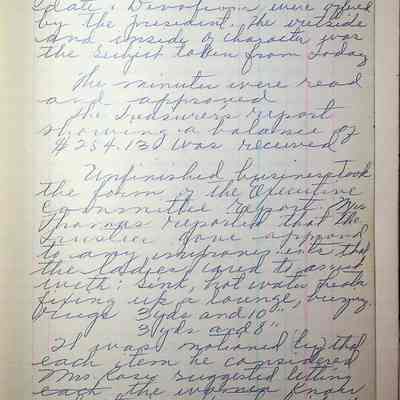 date. Devotions were opened
by the president. The outside
and inside of character was
the subject taken from Today
The minutes were read
and approved
The Treasurer's report
showing a balance of
$254.13 was received
Unfinished business took
the form of the Executive
Committee report. Mrs
Thomas reported that the
Trustees have approved
to any improvements that
the ladies cared to
with: Sink, hot water
fixing up a lounge, buying
rugs 3 yds and 10"
3 yds and 8"
It was motioned by that
each item be considered
Mrs. Case suggested letting
each know